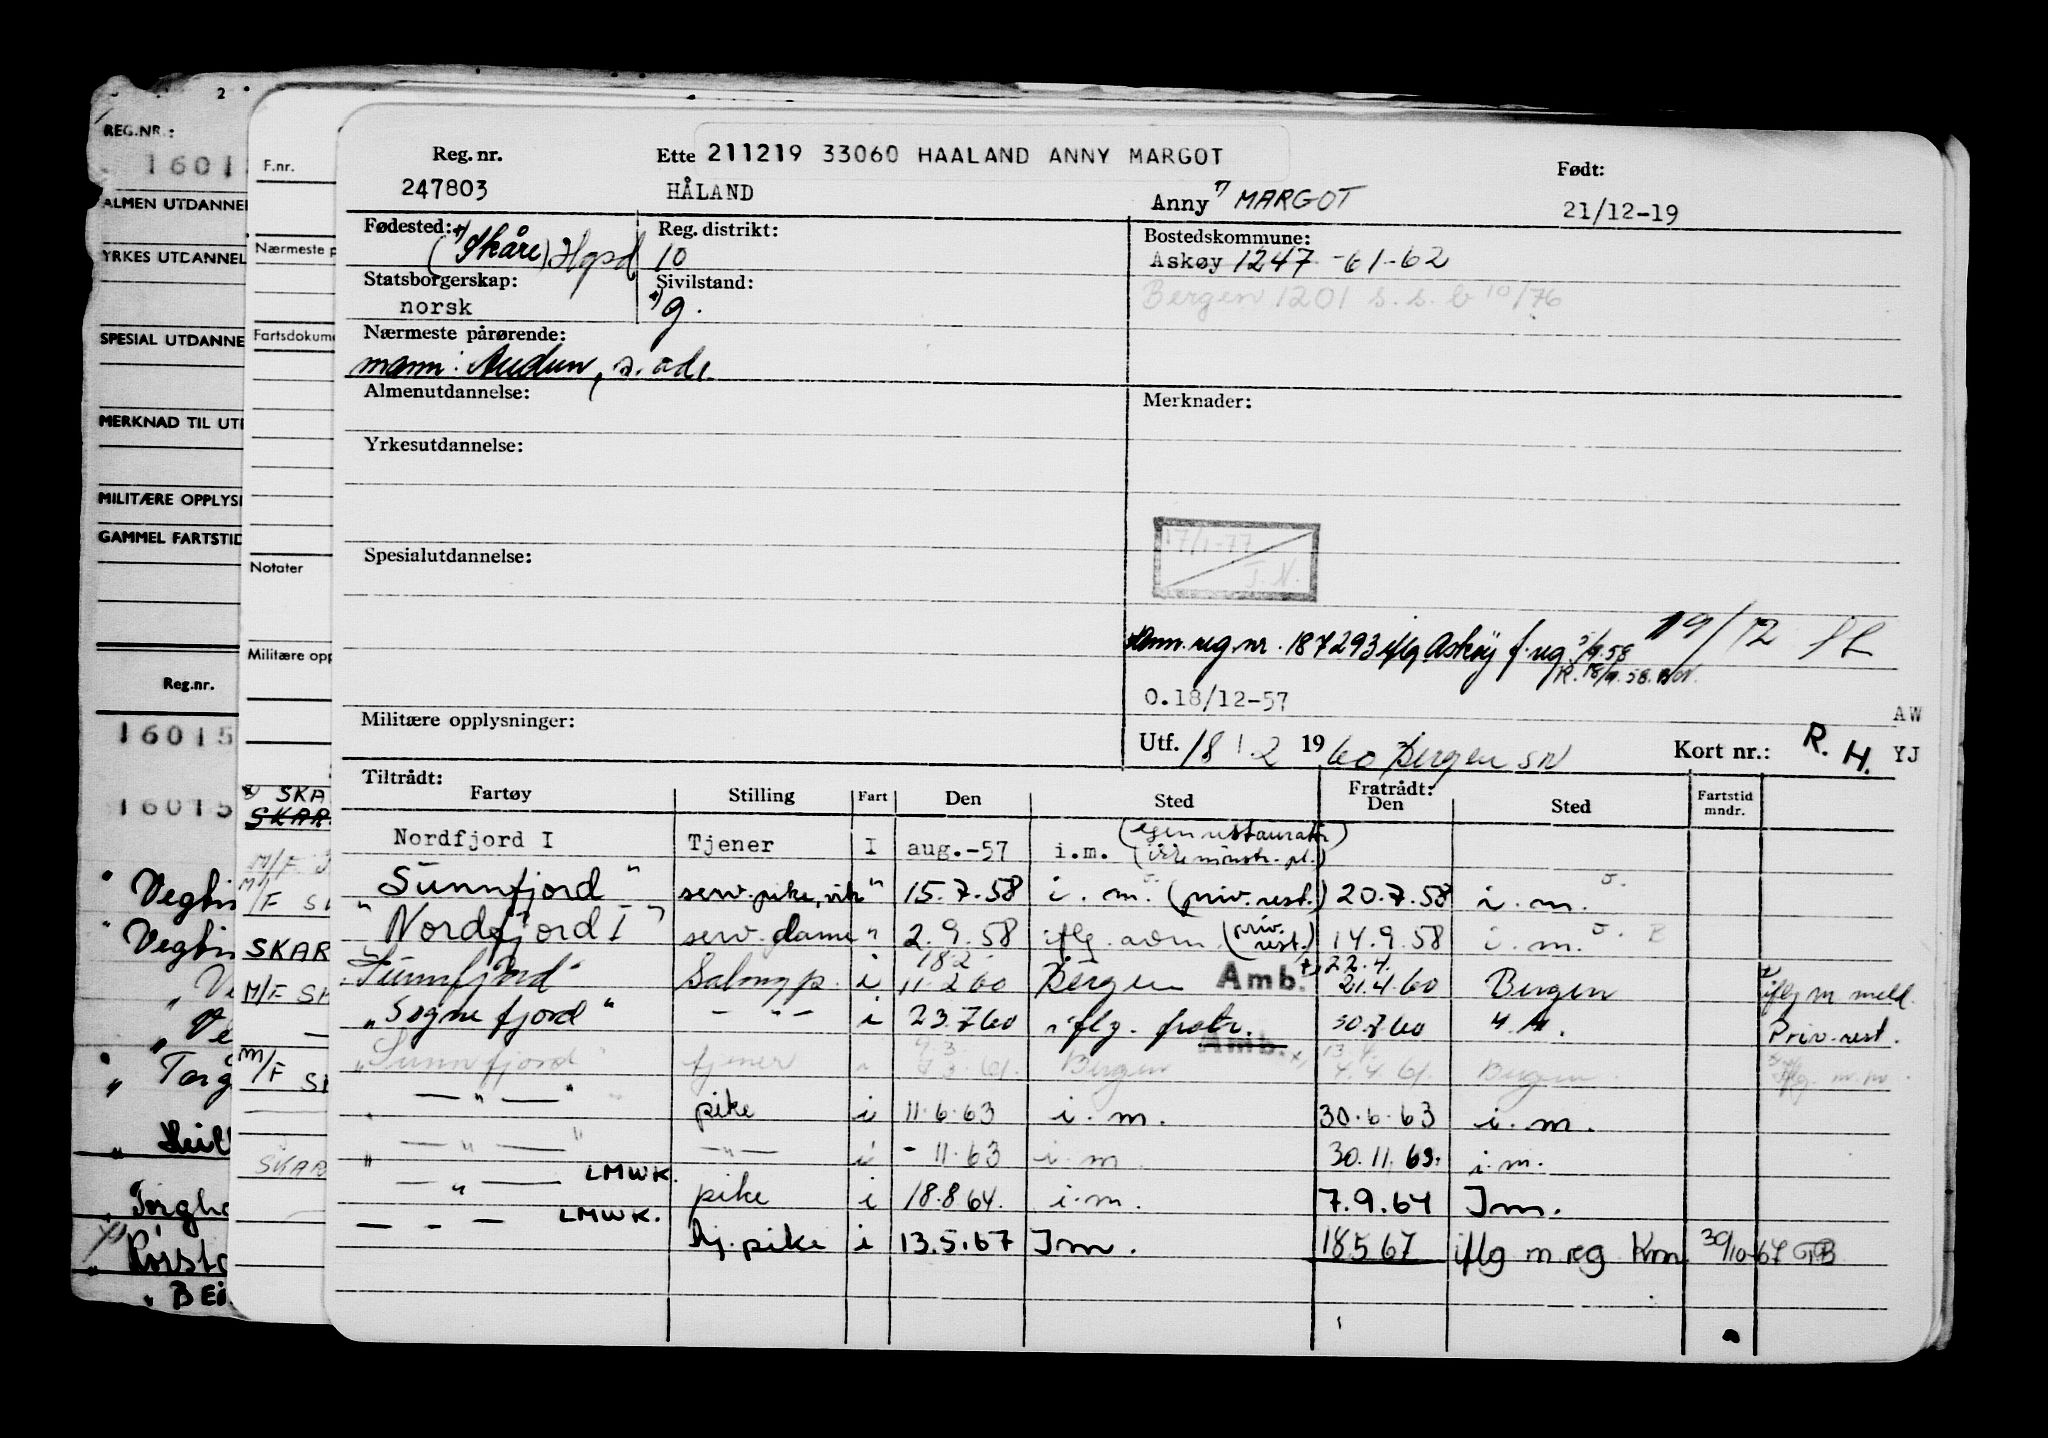 2
REG.NR.:
1601
ALMEN UTDANNE
YRKES UTDANNEL
SPESIAL UTDANNE
MERKNAD TIL UT
MILITÆRE OPPLYS
GAMMEL FARTSTID
Reg.nr.
16015
16015
Vegtin
Vegtin
" Ve
" Ve
" Torg
" Torgha
" BEi
F.nr.
Nærmeste p
Fartsdokume
Notater
Militære opp
SKA
SKAR
M/F S
SKAR
M/F SK
M/F SK
SKAR
Reg. nr. Ette 211219 33060 HAALAND ANNY MARGOT Født:
247803 HÅLAND Anny MARGOT 21/12-19
Fødested: Reg. distrikt: Bostedskommune:
(Skåre) Hgsd 10 Askøy 1247 -61-62
Statsborgerskap: Sivilstand: Bergen 1201 s.s.b 10/76
norsk g.
Nærmeste pårørende:
mann: Audun, s. adr.
Almenutdannelse: Merknader:
Yrkesutdannelse:
17/1-77
J.N.
Spesialutdannelse:
19/12
Ann. reg. nr. 187293 iflg. Askøy f. reg. 5/9.58
R. 18/9.58.
0.18/12-57
Militære opplysninger: AW
Utf. 18/2 1960 Bergen SN Kort nr.: R. H. YJ
Tiltrådt: Fratrådt:
Fartøy Stilling Fart Den Sted Den Sted Fartstid mndr.
Nordfjord I Tjener I aug.-57 i.m. (egen restauratr) (ikke mønstr. pl.)
Sunnfjord" serv. pike, vik " 15.7.58 i.m. (priv. rest.) 20.7.58 i.m.
"Nordfjord I" serv. dame " 2.9.58 iflg. adm (priv. rest.) 14.9.58 i.m.
18.2 22.4.
"Sunnfjord" Salongp. i 11.2 60 Bergen Amb. 21.4.60 Bergen iflg m meld.
"Sognefjord" - " - i 23.7 60 iflg. fratr. 30.7 60 " ". Priv. rest.
"Sunnfjord" tjener i 3.61. Bergen Amb. 4.4.61. Bergen
— " — " pike i 11.6.63 i.m. 30.6.63 i.m.
— " — " — " — i - 11.63 i.m. 30.11.63. i.m.
" — " — LMWK. pike i 18.8 64. i.m 7.9.64 Im.
— - — LMWK. hj. pike i 13.5.67 Im. 18.5 67 iflg m reg Km 30/10-67 TB